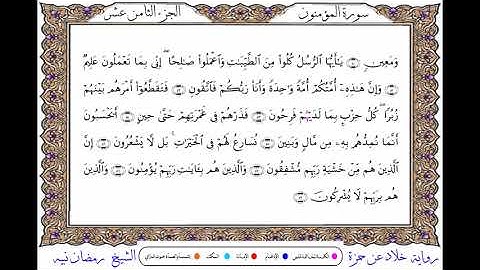 سورة المؤمنون
الجزء الثامن عشر
وَمَعِينٍ يَٰٓأَيُّهَا ٱلرُّسُلُ كُلُوا۟ مِنَ ٱلطَّيِّبَٰتِ وَٱعْمَلُوا۟ صَٰلِحًا ۖ إِنِّى بِمَا تَعْمَلُونَ عَلِيمٌ
وَإِنَّ هَٰذِهِۦٓ أُمَّتُكُمْ أُمَّةً وَٰحِدَةً وَأَنَا۠ رَبُّكُمْ فَٱتَّقُونِ فَتَقَطَّعُوٓا۟ أَمْرَهُم بَيْنَهُمْ
زُبُرًا ۖ كُلُّ حِزْبٍۭ بِمَا لَدَيْهُمْ فَرِحُونَ فَذَرْهُمْ فِى غَمْرَتِهِمْ حَتَّىٰ حِينٍ أَيَحْسَبُونَ
أَنَّمَا نُمِدُّهُم بِهِۦ مِن مَّالٍ وَبَنِينَ نُسَارِعُ لَهُمْ فِى ٱلْخَيْرَٰتِ ۚ بَل لَّا يَشْعُرُونَ إِنَّ
ٱلَّذِينَ هُم مِّنْ خَشْيَةِ رَبِّهِم مُّشْفِقُونَ وَٱلَّذِينَ هُم بِـَٔايَٰتِ رَبِّهِمْ يُؤْمِنُونَ وَٱلَّذِينَ
هُم بِرَبِّهِمْ لَا يُشْرِكُونَ
رواية خلاد عن حمزة
الشيخ رمضان نبيه